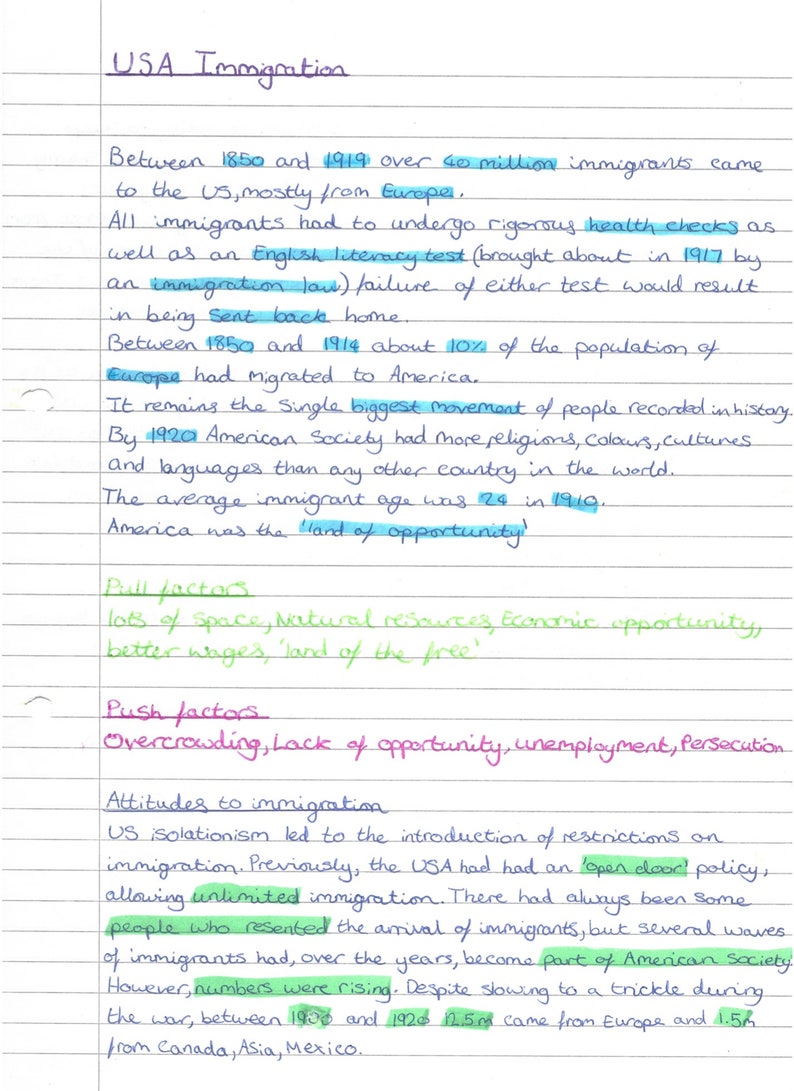 USA Immigration
Between 1850 and 1919 over 40 million immigrants came
to the US, mostly from Europe.
All immigrants had to undergo rigorous health checks as
well as an English literacy test (brought about in 1917 by
an immigration law) failure of either test would result
in being sent back home.
Between 1850 and 1914 about 10% of the population of
Europe had migrated to America.
It remains the single biggest movement of people recorded in history.
By 1920 American Society had more religions, colours, cultures
and languages than any other country in the world.
The average immigrant age was 24 in 1910.
America was the 'land of opportunity'
Pull factors
lots of space, Natural resources, Economic opportunity,
better wages, 'land of the free'
Push factors
Overcrowding, Lack of opportunity, unemployment, Persecution
Attitudes to immigration
US isolationism led to the introduction of restrictions on
immigration. Previously, the USA had had an 'open door' policy,
allowing unlimited immigration. There had always been some
people who resented the arrival of immigrants, but several waves
of immigrants had, over the years, become part of American Society.
However, numbers were rising. Despite slowing to a trickle during
the war, between and 1920 12.5m came from Europe and 1.5m
from Canada, Asia, Mexico.